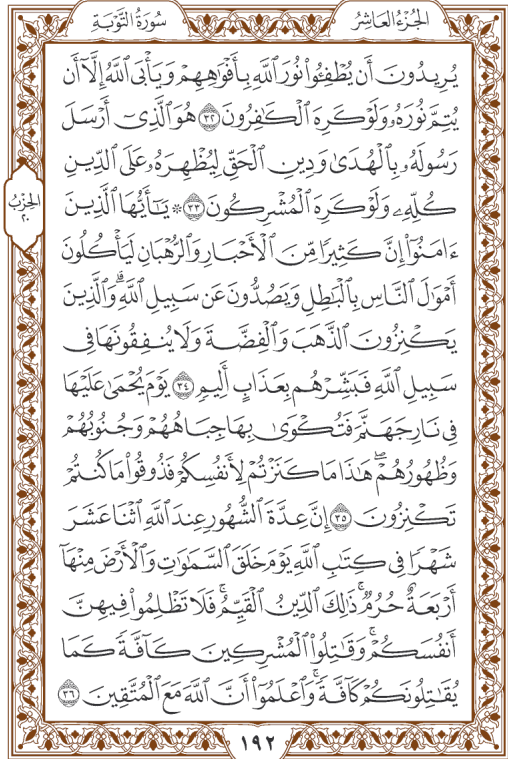 الجُزْءُ العَاشِرُ
سُورَةُ التَّوْبَةِ
يُرِيدُونَ أَن يُطْفِـُٔوا۟ نُورَ ٱللَّهِ بِأَفْوَٰهِهِمْ وَيَأْبَى ٱللَّهُ إِلَّآ أَن
يُتِمَّ نُورَهُۥ وَلَوْ كَرِهَ ٱلْكَٰفِرُونَ ٣٢ هُوَ ٱلَّذِىٓ أَرْسَلَ
رَسُولَهُۥ بِٱلْهُدَىٰ وَدِينِ ٱلْحَقِّ لِيُظْهِرَهُۥ عَلَى ٱلدِّينِ
كُلِّهِۦ وَلَوْ كَرِهَ ٱلْمُشْرِكُونَ ٣٣ ۞ يَٰٓأَيُّهَا ٱلَّذِينَ
الحِزْبُ
٢٠
ءَامَنُوٓا۟ إِنَّ كَثِيرًا مِّنَ ٱلْأَحْبَارِ وَٱلرُّهْبَانِ لَيَأْكُلُونَ
أَمْوَٰلَ ٱلنَّاسِ بِٱلْبَٰطِلِ وَيَصُدُّونَ عَن سَبِيلِ ٱللَّهِ ۗ وَٱلَّذِينَ
يَكْنِزُونَ ٱلذَّهَبَ وَٱلْفِضَّةَ وَلَا يُنفِقُونَهَا فِى
سَبِيلِ ٱللَّهِ فَبَشِّرْهُم بِعَذَابٍ أَلِيمٍ ٣٤ يَوْمَ يُحْمَىٰ عَلَيْهَا
فِى نَارِ جَهَنَّمَ فَتُكْوَىٰ بِهَا جِبَاهُهُمْ وَجُنُوبُهُمْ
وَظُهُورُهُمْ ۖ هَٰذَا مَا كَنَزْتُمْ لِأَنفُسِكُمْ فَذُوقُوا۟ مَا كُنتُمْ
تَكْنِزُونَ ٣٥ إِنَّ عِدَّةَ ٱلشُّهُورِ عِندَ ٱللَّهِ ٱثْنَا عَشَرَ
شَهْرًا فِى كِتَٰبِ ٱللَّهِ يَوْمَ خَلَقَ ٱلسَّمَٰوَٰتِ وَٱلْأَرْضَ مِنْهَآ
أَرْبَعَةٌ حُرُمٌ ۚ ذَٰلِكَ ٱلدِّينُ ٱلْقَيِّمُ ۚ فَلَا تَظْلِمُوا۟ فِيهِنَّ
أَنفُسَكُمْ ۚ وَقَٰتِلُوا۟ ٱلْمُشْرِكِينَ كَآفَّةً كَمَا
يُقَٰتِلُونَكُمْ كَآفَّةً ۚ وَٱعْلَمُوٓا۟ أَنَّ ٱللَّهَ مَعَ ٱلْمُتَّقِينَ ٣٦
١٩٢